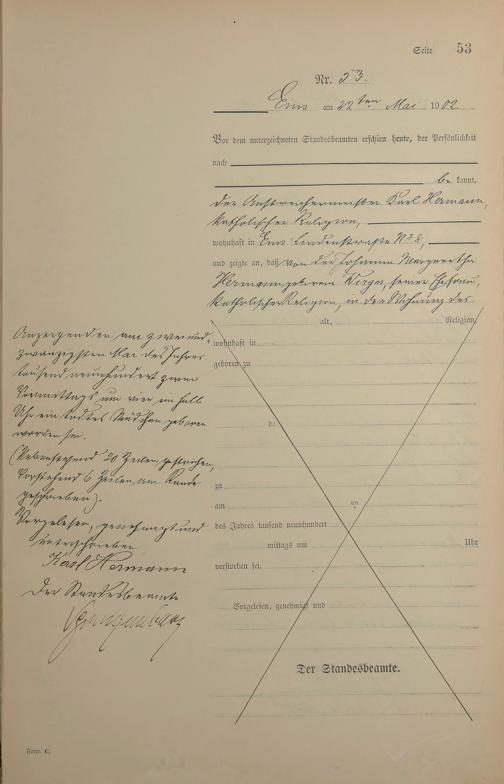 Seite 53
Nr. 53.
Ems am 22ten Mai 1902
Vor dem unterzeichneten Standesbeamten erschien heute, der Persönlichkeit
nach
be kannt,
der Anstreichermeister Karl Hermann,
katholischer Religion,
wohnhaft in Ems Lindenstraße No 8,
und zeigte an, daß von der Johanna Margaretha
Hermann geborene seiner Ehefrau,
katholischer Religion, in der Wohnung des
alt, Religion,
wohnhaft in
geboren zu
zu
am
des Jahres tausend neunhundert
mittags um Uhr
verstorben sei.
Vorgelesen, genehmigt und
Der Standesbeamte.
Anzeigenden am zwei und
zwanzigsten Mai des Jahres
tausend neunhundert zwei
Vormittags um vier ein halb
Uhr ein todtes Mädchen geboren
worden sei.
(Nebenstehend 20 Zeilen gestrichen,
Vorstehend 6 Zeilen am Rande
geschrieben).
Vorgelesen, genehmigt und
unterschrieben
Karl Hermann
Der Standesbeamte
Form. C.